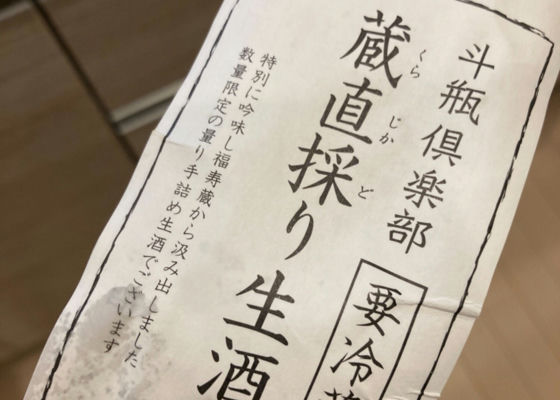 斗瓶倶楽部
蔵直採り生酒
くら じか ど
要冷蔵
特別に吟味し福寿蔵から汲み出しました
数量限定の量り手詰め生酒でございます